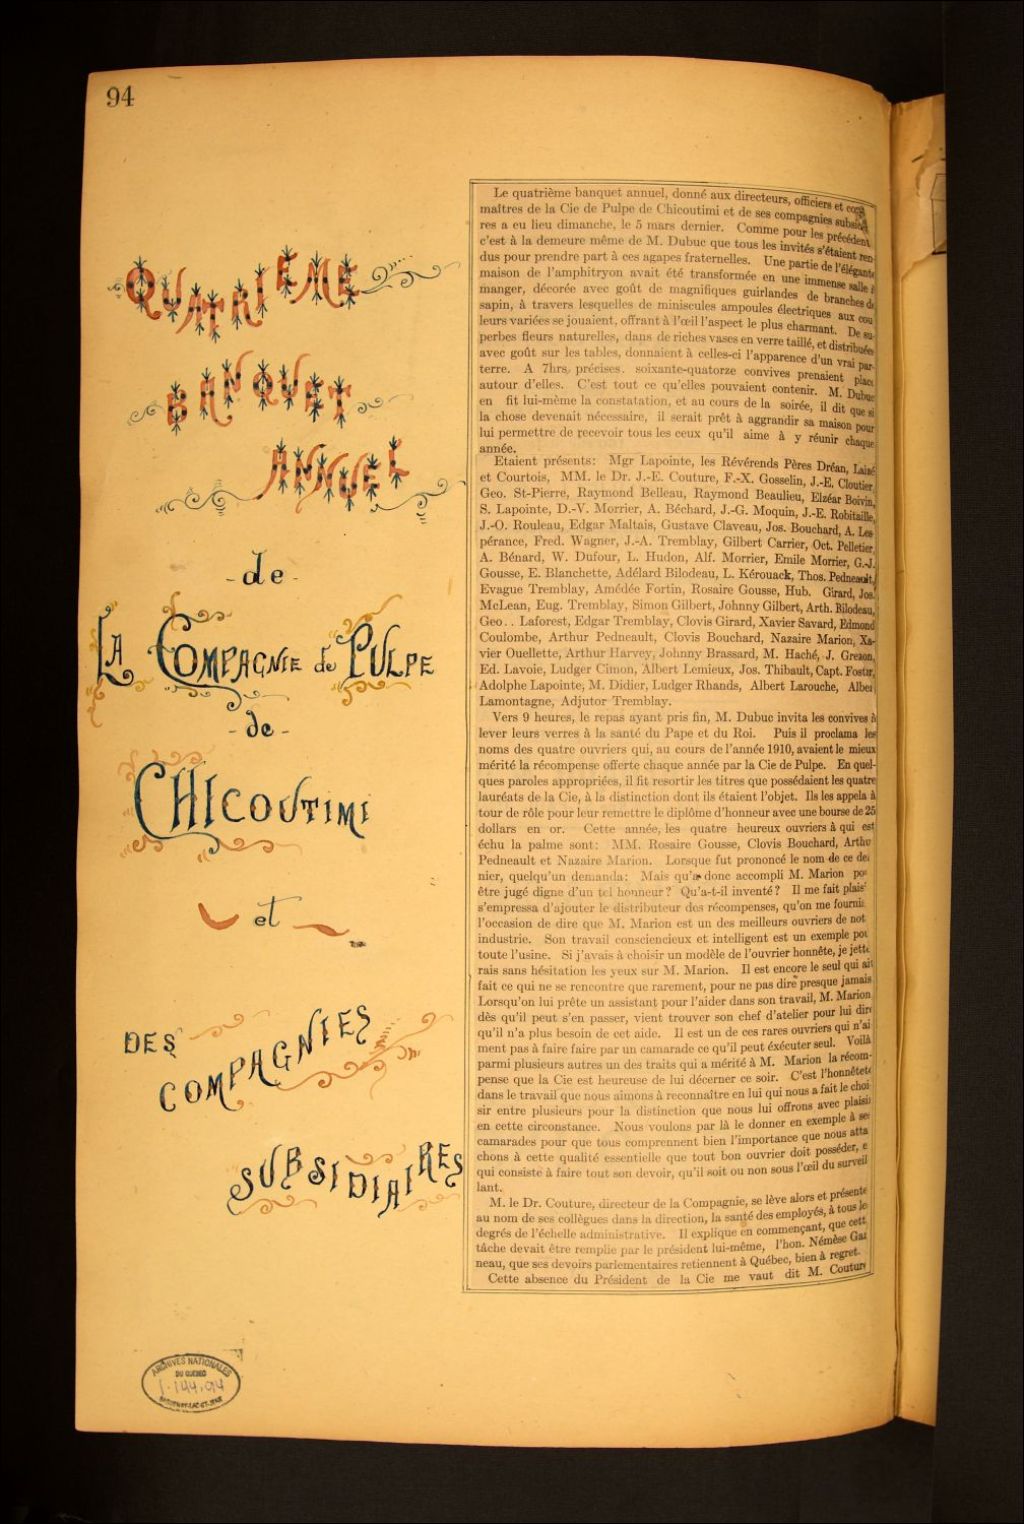 94
QUATRIEME
BANQUET
ANNUEL
- de -
LA COMPAGNIE de PULPE
- de -
CHICOUTIMI
et
DES
COMPAGNIES
SUBSIDIAIRES
Le quatrième banquet annuel, donné aux directeurs, officiers et
maîtres de la Cie de Pulpe de Chicoutimi et de ses compagnies
res a eu lieu dimanche, le 5 mars dernier. Comme pour les précédent
c'est à la demeure même de M. Dubuc que tous les invités s'étaient ren-
dus pour prendre part à ces agapes fraternelles. Une partie de l'élégante
maison de l'amphitryon avait été transformée en une immense salle à
manger, décorée avec goût de magnifiques guirlandes de branches de
sapin, à travers lesquelles de miniscules ampoules électriques aux cou
leurs variées se jouaient, offrant à l'œil l'aspect le plus charmant. De su-
perbes fleurs naturelles, dans de riches vases en verre taillé, et distribuées
avec goût sur les tables, donnaient à celles-ci l'apparence d'un vrai par-
terre. A 7hrs, précises. soixante-quatorze convives prenaient place
autour d'elles. C'est tout ce qu'elles pouvaient contenir. M. Dubuc
en fit lui-mème la constatation, et au cours de la soirée, il dit que si
la chose devenait nécessaire, il serait prêt à aggrandir sa maison pour
lui permettre de recevoir tous les ceux qu'il aime à y réunir chaque
année.
Etaient présents: Mgr Lapointe, les Révérends Pères Dréan, Lainé
et Courtois, MM. le Dr. J.-E. Couture, F.-X. Gosselin, J.-E. Cloutier,
Geo. St-Pierre, Raymond Belleau, Raymond Beaulieu, Elzéar Boivin,
S. Lapointe, D.-V. Morrier, A. Béchard, J.-G. Moquin, J.-E. Robitaille,
J.-O. Rouleau, Edgar Maltais, Gustave Claveau, Jos. Bouchard, A. Les
pérance, Fred. Wagner, J.-A. Tremblay, Gilbert Carrier, Oct. Pelletier,
A. Bénard, W. Dufour, L. Hudon, Alf. Morrier, Emile Morrier, G.-J.
Gousse, E. Blanchette, Adélard Bilodeau, L. Kérouack, Thos. Pedneault,
Evague Tremblay, Amédée Fortin, Rosaire Gousse, Hub. Girard, Jos.
McLean, Eug. Tremblay, Simon Gilbert, Johnny Gilbert, Arth. Bilodeau,
Geo.. Laforest, Edgar Tremblay, Clovis Girard, Xavier Savard, Edmond
Coulombe, Arthur Pedneault, Clovis Bouchard, Nazaire Marion, Xa-
vier Ouellette, Arthur Harvey, Johnny Brassard, M. Haché, J. Grenon,
Ed. Lavoie, Ludger Cimon, Albert Lemieux, Jos. Thibault, Capt. Foster,
Adolphe Lapointe, M. Didier, Ludger Rhands, Albert Larouche, Albe
Lamontagne, Adjutor Tremblay.
Vers 9 heures, le repas ayant pris fin, M. Dubuc invita les convives à
lever leurs verres à la santé du Pape et du Roi. Puis il proclama les
noms des quatre ouvriers qui, au cours de l'année 1910, avaient le mieux
mérité la récompense offerte chaque année par la Cie de Pulpe. En quel-
ques paroles appropriées, il fit resortir les titres que possédaient les quatre
lauréats de la Cie, à la distinction dont ils étaient l'objet. Ils les appela à
tour de rôle pour leur remettre le diplôme d'honneur avec une bourse de 25
dollars en or. Cette année, les quatre heureux ouvriers à qui est
échu la palme sont: MM. Rosaire Gousse, Clovis Bouchard, Arthu
Pedneault et Nazaire Marion. Lorsque fut prononcé le nom de ce der
nier, quelqu'un demanda: Mais qu'a donc accompli M. Marion pou
être jugé digne d'un tel honneur? Qu'a-t-il inventé? Il me fait plais
s'empressa d'ajouter le distributeur des récompenses, qu'on me fournis
l'occasion de dire que M. Marion est un des meilleurs ouvriers de not
industrie. Son travail consciencieux et intelligent est un exemple pou
toute l'usine. Si j'avais à choisir un modèle de l'ouvrier honnête, je jette
rais sans hésitation les yeux sur M. Marion. Il est encore le seul qui ait
fait ce qui ne se rencontre que rarement, pour ne pas dire presque jamais
Lorsqu'on lui prête un assistant pour l'aider dans son travail, M. Marion
dès qu'il peut s'en passer, vient trouver son chef d'atelier pour lui dire
qu'il n'a plus besoin de cet aide. Il est un de ces rares ouvriers qui n'ai
ment pas à faire faire par un camarade ce qu'il peut éxécuter seul. Voilà
parmi plusieurs autres un des traits qui a mérité à M. Marion la récom-
pense que la Cie est heureuse de lui décerner ce soir. C'est l'honnêteté
dans le travail que nous aimons à reconnaître en lui qui nous a fait le choi
sir entre plusieurs pour la distinction que nous lui offrons avec plaisi
en cette circonstance. Nous voulons par là le donner en exemple à se
camarades pour que tous comprennent bien l'importance que nous atta
chons à cette qualité essentielle que tout bon ouvrier doit posséder, e
qui consiste à faire tout son devoir, qu'il soit ou non sous l'œil du surveil
lant.
M. le Dr. Couture, directeur de la Compagnie, se lève alors et présente
au nom de ses collègues dans la direction, la santé des employés, à tous le
degrés de l'échelle administrative. Il explique en commençant, que cett
tâche devait être remplie par le président lui-même, l'hon. Némèse Gar
neau, que ses devoirs parlementaires retiennent à Québec, bien à regret.
Cette absence du Président de la Cie me vaut dit M. Couture
ARCHIVES NATIONALES
DU QUÉBEC